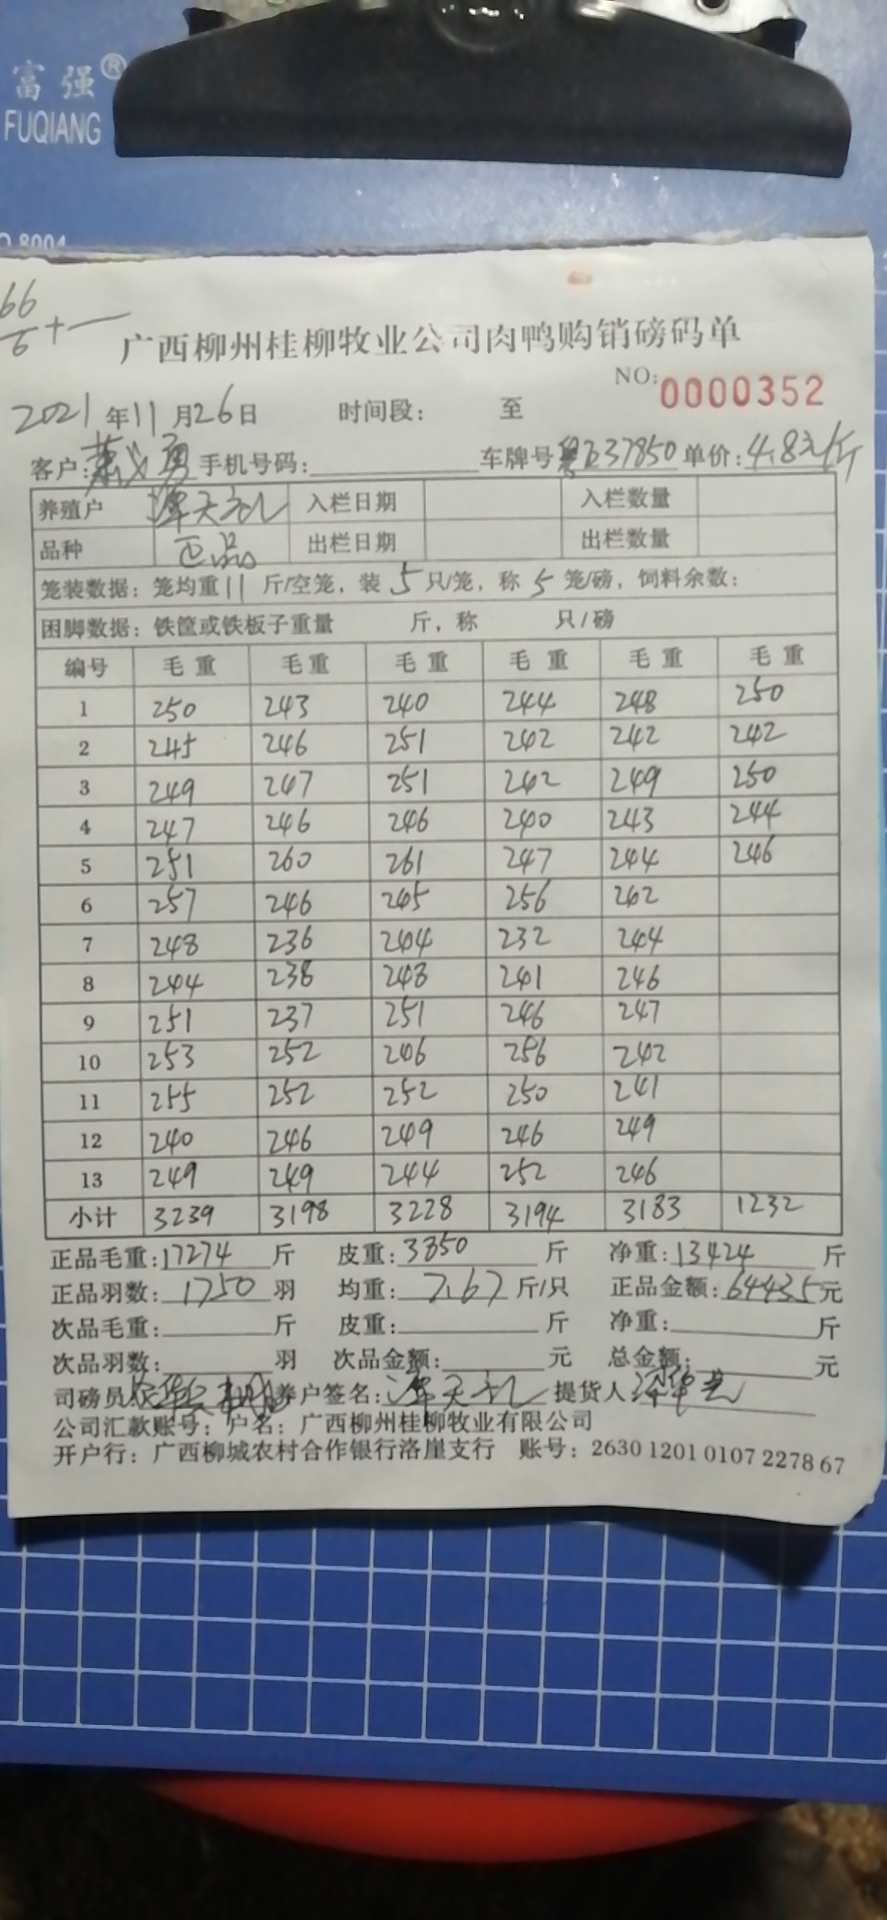 富强®
FUQIANG
66
6 + 一
广西柳州桂柳牧业公司肉鸭购销磅码单
NO: 0000352
2021 年 11 月 26 日 时间段: 至
客户: 勇 手机号码: 车牌号 37850 单价: 4.8元/斤
养殖户 覃天礼 入栏日期 入栏数量
品种 正品 出栏日期 出栏数量
笼装数据: 笼均重 11 斤/空笼, 装 5 只/笼, 称 5 笼/磅, 饲料余数:
困脚数据: 铁筐或铁板子重量 斤, 称 只/磅
编号 毛重 毛重 毛重 毛重 毛重 毛重
1 250 243 240 244 248 250
2 245 246 251 242 242 242
3 249 247 251 242 249 250
4 247 246 246 240 243 244
5 251 260 261 247 244 246
6 257 246 245 256 242
7 248 236 244 232 244
8 244 238 248 241 246
9 251 237 251 246 247
10 253 252 246 256 242
11 255 252 252 250 241
12 240 246 249 246 249
13 249 249 244 252 246
小计 3239 3198 3228 3194 3183 1232
正品毛重: 17274 斤 皮重: 3850 斤 净重: 13424 斤
正品羽数: 1750 羽 均重: 7.67 斤/只 正品金额: 64435 元
次品毛重: 斤 皮重: 斤 净重: 斤
次品羽数: 羽 次品金额: 元 总金额: 元
司磅员 养户签名: 覃天礼 提货人
公司汇款账号: 户名: 广西柳州桂柳牧业有限公司
开户行: 广西柳城农村合作银行洛崖支行 账号: 2630 1201 0107 2278 67